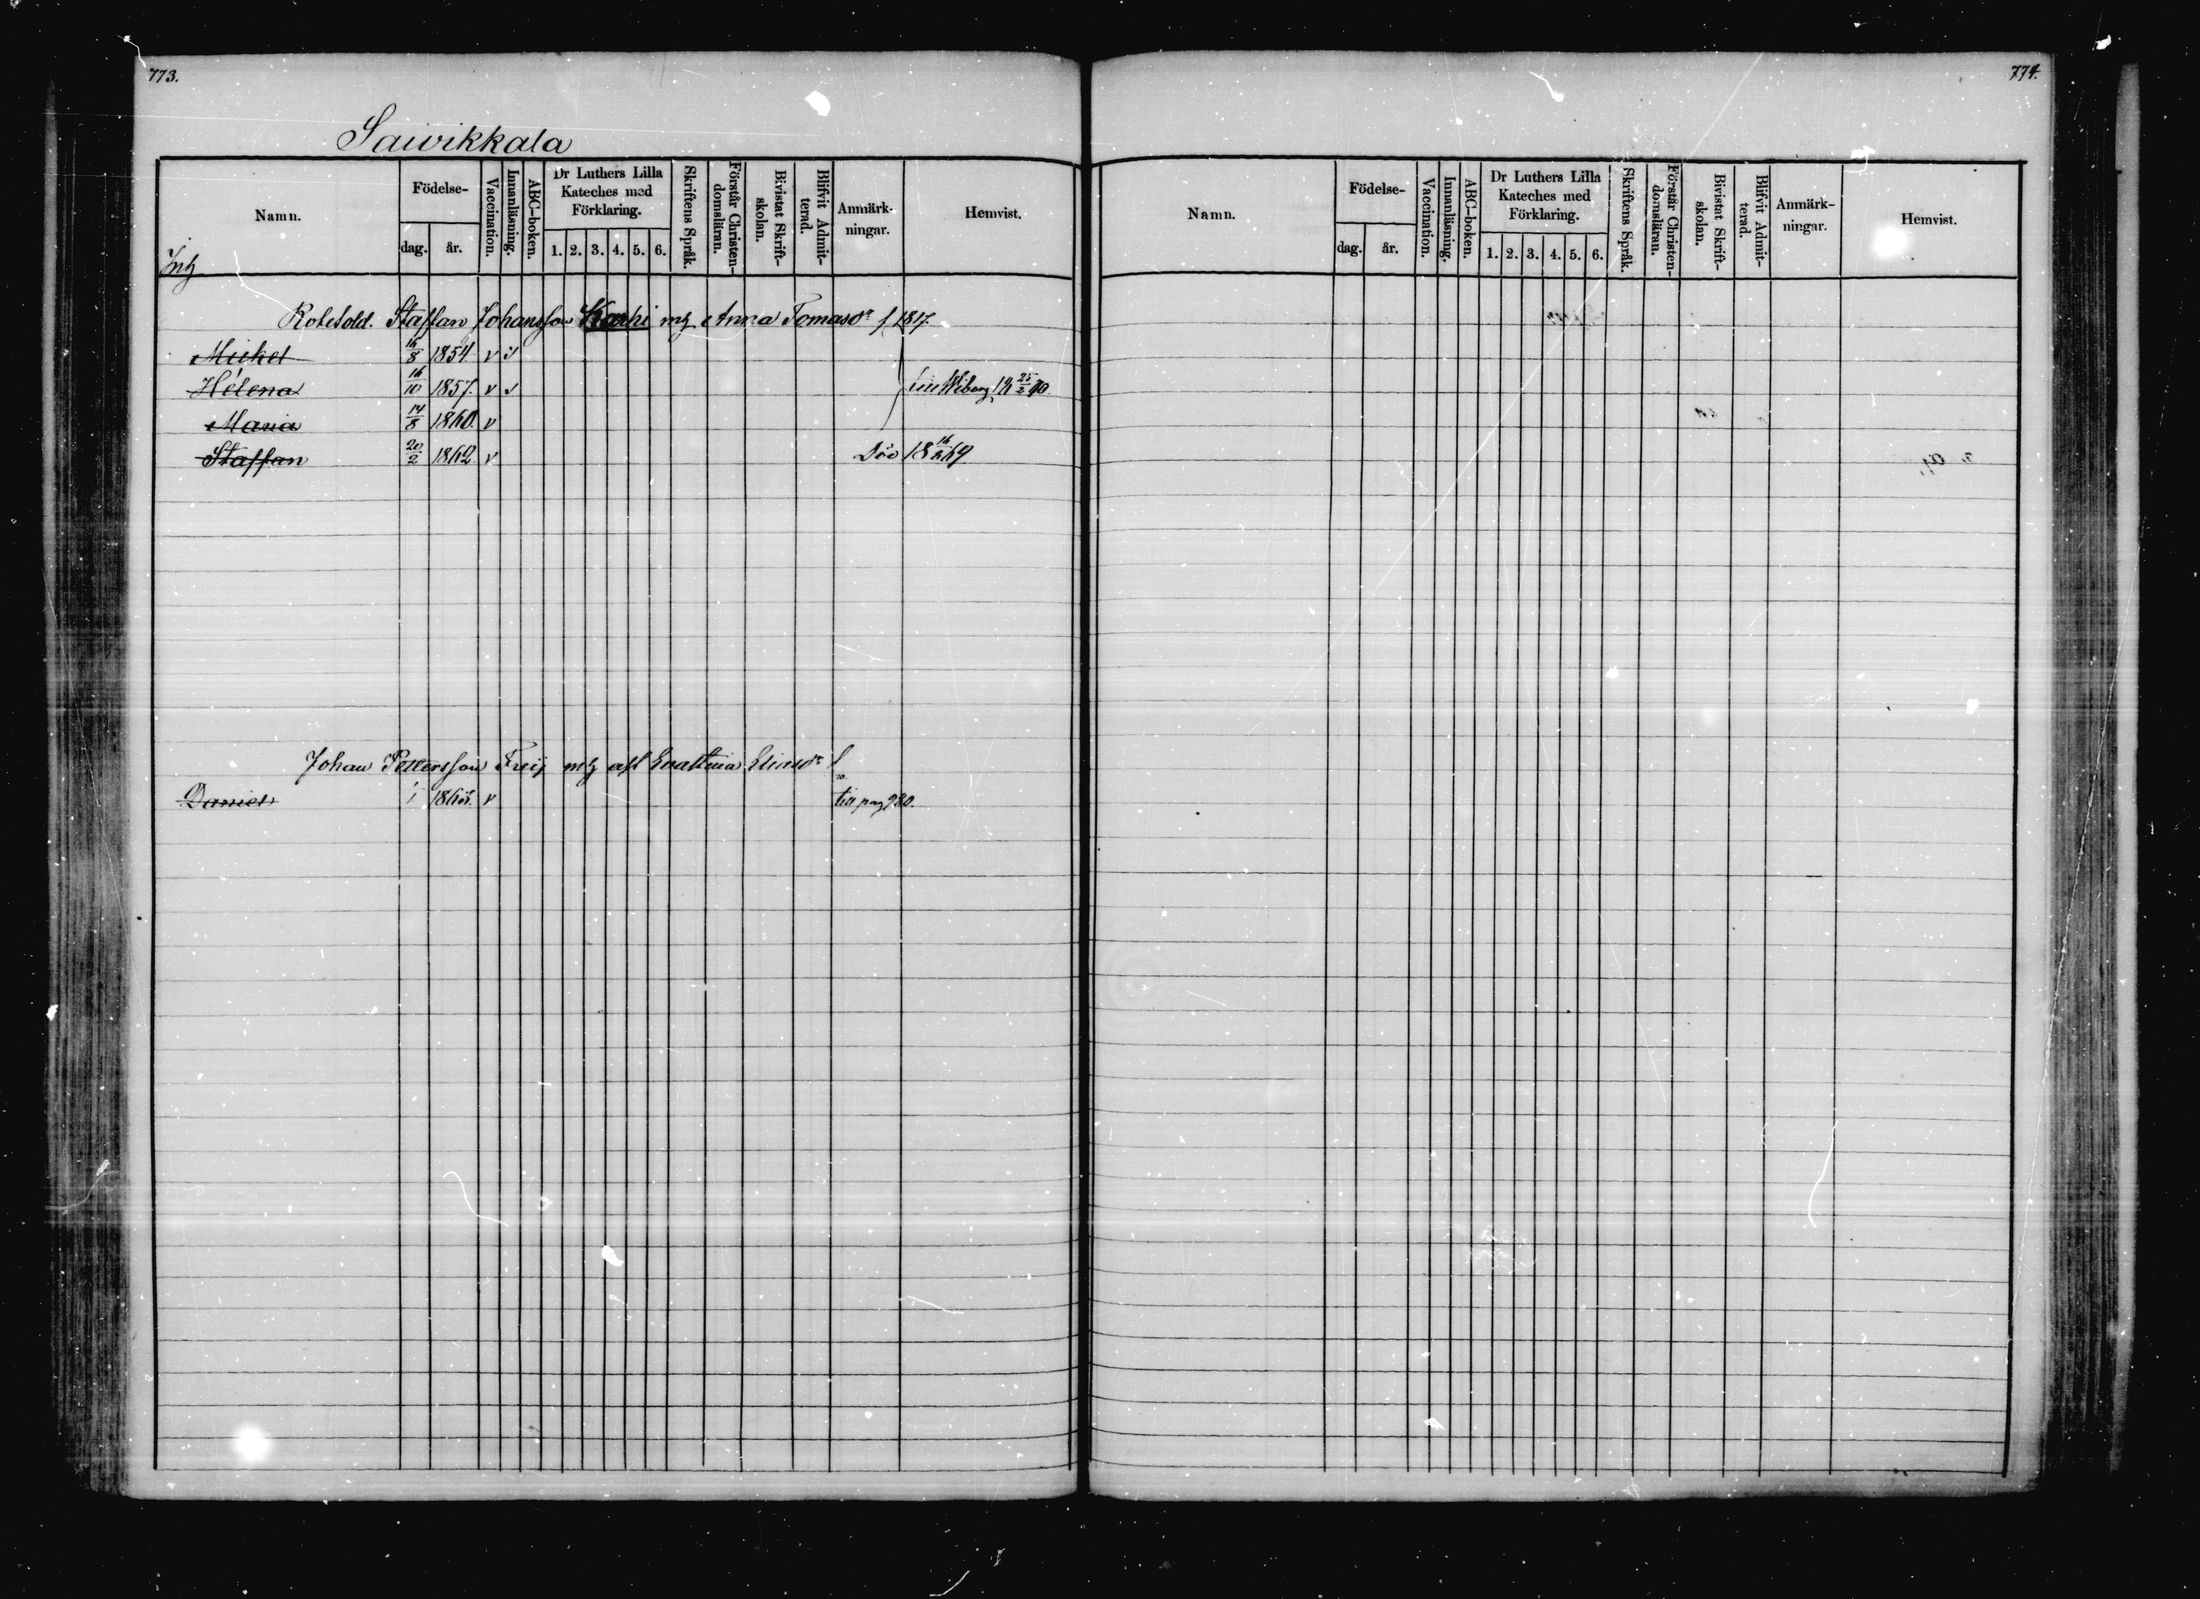 773.
Saivikkala
Namn.
Födelse-
dag.
år.
Vaccination.
Innanläsning.
ABC-boken.
Dr Luthers Lilla
Kateches med
Förklaring.
1. 2. 3. 4. 5. 6.
Skriftens Språk.
Förstår Christen-
domsläran.
Bivistat Skrift-
skolan.
Blifvit Admit-
terad.
Anmärk-
ningar.
Hemvist.
Inh
Rotesold. Staffan Johansson Karhi mh Anna Tomasdr f 1817.
Michel 16/8 1854 v v
Helena 16/10 1857. v v Wiborg 18 25/2 70.
Maria 14/8 1860. v
Staffan 20/2 1862 v Död 18 69
Johan Pettersson Freij mh Elinsdr f
Daniel v till pag 980.
774.
Namn.
Födelse-
dag.
år.
Vaccination.
Innanläsning.
ABC-boken.
Dr Luthers Lilla
Kateches med
Förklaring.
1. 2. 3. 4. 5. 6.
Skriftens Språk.
Förstår Christen-
domsläran.
Bivistat Skrift-
skolan.
Blifvit Admit-
terad.
Anmärk-
ningar.
Hemvist.